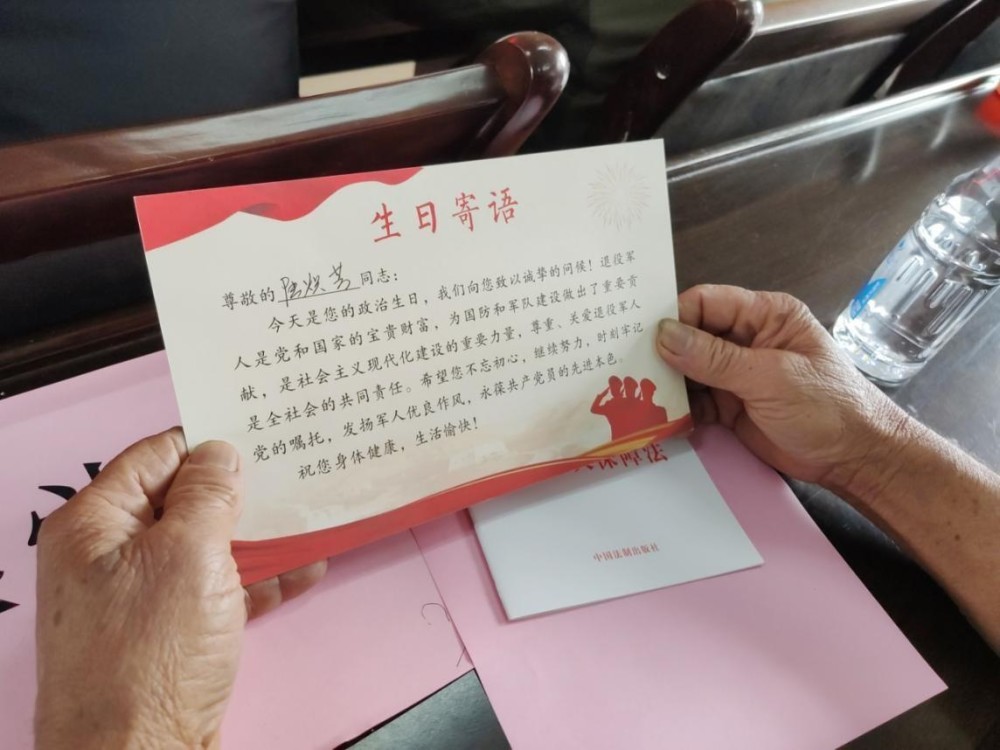 生日寄语
尊敬的 同志：
今天是您的政治生日，我们向您致以诚挚的问候！退役军
人是党和国家的宝贵财富，为国防和军队建设做出了重要贡
献，是社会主义现代化建设的重要力量，尊重、关爱退役军人
是全社会的共同责任。希望您不忘初心，继续努力，时刻牢记
党的嘱托，发扬军人优良作风，永葆共产党员的先进本色。
祝您身体健康，生活愉快！
保障法
中国法制出版社